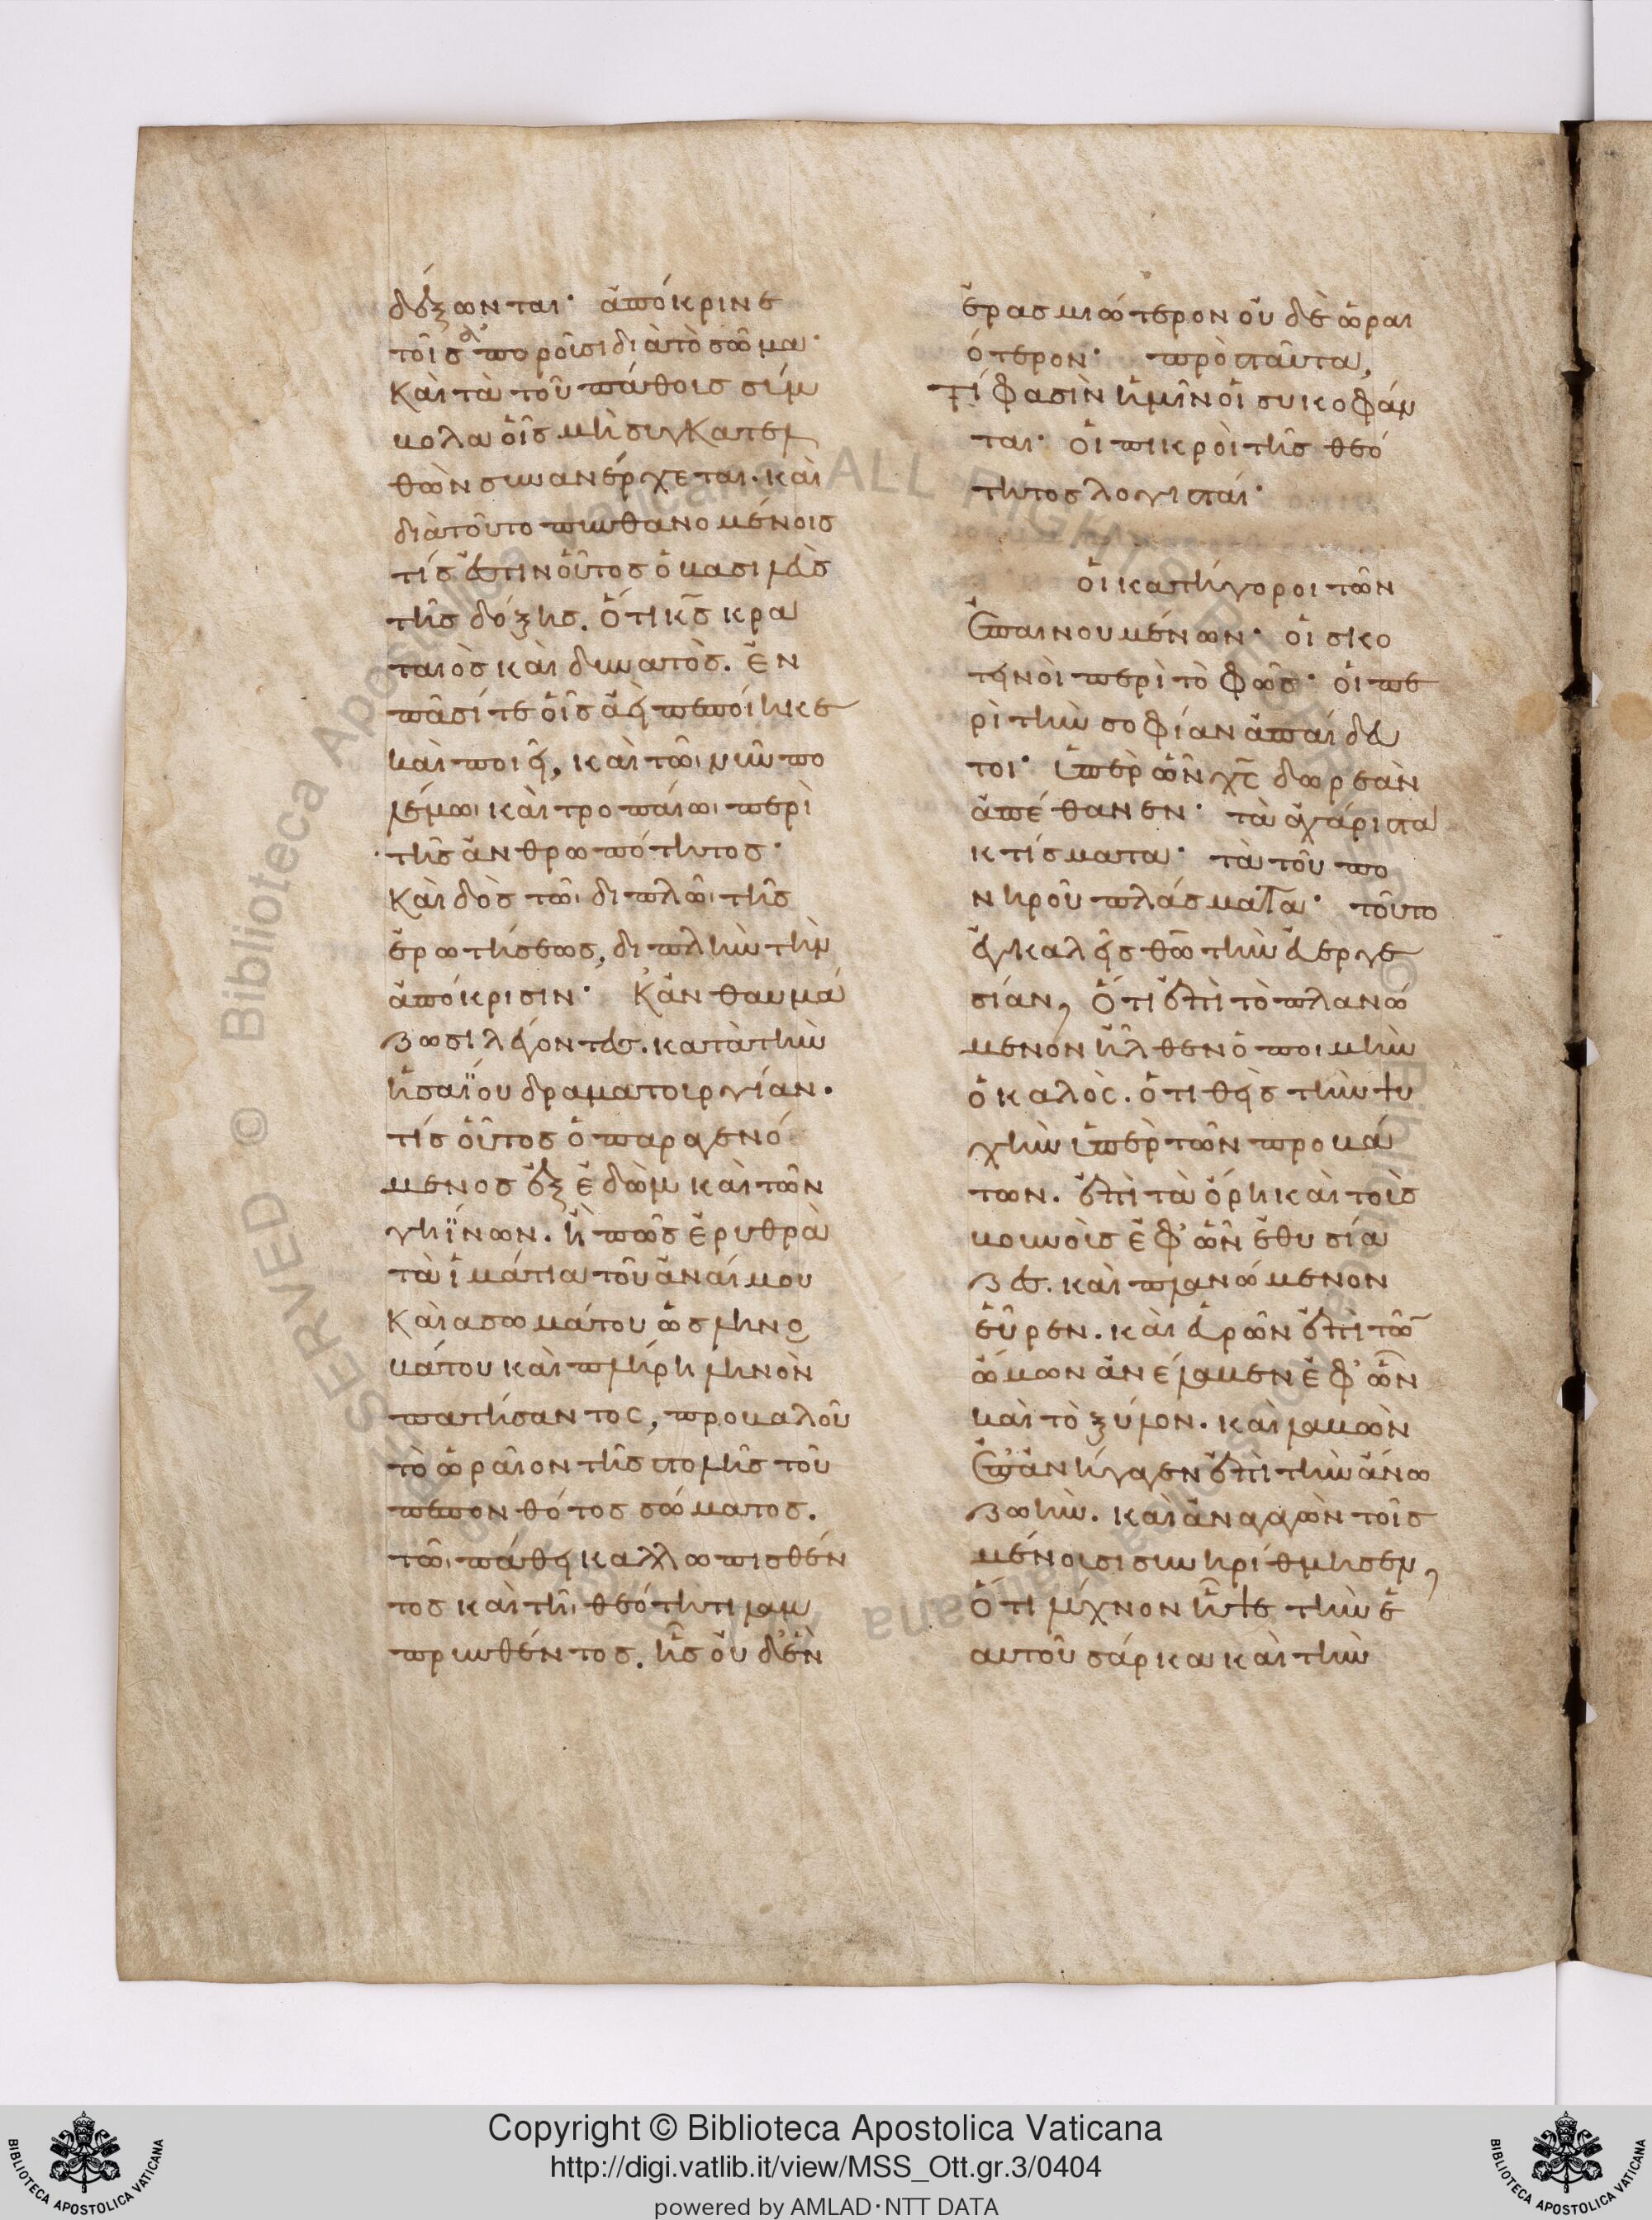 δέξωνται· ἀπόκριναι
τοῖς ἀποροῦσι διὰ τὸ σῶμα·
καὶ τὰ τοῦ πάθους σύμ
βολα οἷς μὴ συγκατελ
θὼν συνανέρχεται. καὶ
διὰτοῦτο πυνθανομένοις
τίς ἐστιν οὗτος ὁ βασιλεὺς
τῆς δόξης. ὅτι κ̅ς̅ κρα
ταιὸς καὶ δυνατὸς. ἐν
πᾶσί τε οἷς ἀεὶ πεποίηκε
καὶ ποιεῖ, καὶ τῶ νῦν πο
λέμω καὶ τροπαίω περὶ
τῆς ἀνθρωπότητος·
καὶ δὸς τῶ διπλῶ τῆς
ἐρωτήσεως, διπλὴν τὴν
ἀπόκρισιν· κἂν θαυμά
ζωσι λέγοντες. κατὰ τὴν
ἡσαΐου δραματουργίαν.
τίς οὗτος ὁ παραγενό
μενος ἐξ ἐδὼμ καὶ τῶν
γηΐνων. ἢ πῶς ἐρυθρὰ
τὰ ἱμάτια τοῦ ἀναίμου
καὶ ασωμάτου ὡς ληνο
βάτου καὶ πλήρη ληνὸν
πατήσαντος, προβαλοῦ
τὸ ὡραῖον τῆς στολῆς τοῦ
πεπονθότος σώματος.
τῶ πάθει καλλωπισθέν
τος καὶ τῆ θεότητι λαμ
πρυνθέντος. ἧς οὐδὲν
ἐρασμιώτερον οὐδὲ ὡραι
ότερον· πρὸς ταῦτα,
Τί φασὶν ἡμῖν οἱ συκοφάν
ται· οἱ πικροὶ τῆς θεό
τητος λογισταί·
οἱ κατήγοροι τῶν
ἐπαινουμένων· οἱ σκο
τεινοὶ περὶ τὸ φῶς· οἱ πε
ρὶ τὴν σοφίαν ἀπαίδευ
τοι· ὑπὲρ ὧν χ̅ς̅ δωρεὰν
ἀπέθανεν· τὰ ἀχάριστα
κτίσματα· τὰ τοῦ πο
νηροῦ πλάσματα· τοῦτο
ἐγκαλεῖς θ̅ω̅ τὴν εὐεργε
σίαν, ὅτι ἐπὶ τὸ πλανώ
μενον ἦλθεν ὁ ποιμὴν
ὁ καλὸς. ὁ τιθεὶς τὴν ψυ
χὴν ὑπὲρ τῶν προβά
των. ἐπὶ τὰ ὄρη καὶ τοὺς
βουνοὺς ἐφ' ὧν ἐθυσία
ζες. καὶ πλανώμενον
εὗρεν. καὶ εὑρὼν ἐπὶ τῶν
ὤμων ἀνέλαβεν ἐφ' ὧν
καὶ τὸ ξύλον. καὶ λαβὼν
ἐπανήγαγεν ἐπὶ τὴν ἄνω
ζωὴν. καὶ ἀναγαγὼν τοῖς
μένουσι συνηρίθμησεν,
ὅτι λύχνον ἧψε τὴν ἑ
αυτοῦ σάρκα καὶ τὴν
Copyright © Biblioteca Apostolica Vaticana
http://digi.vatlib.it/view/MSS_Ott.gr.3/0404
powered by AMLAD·NTT DATA